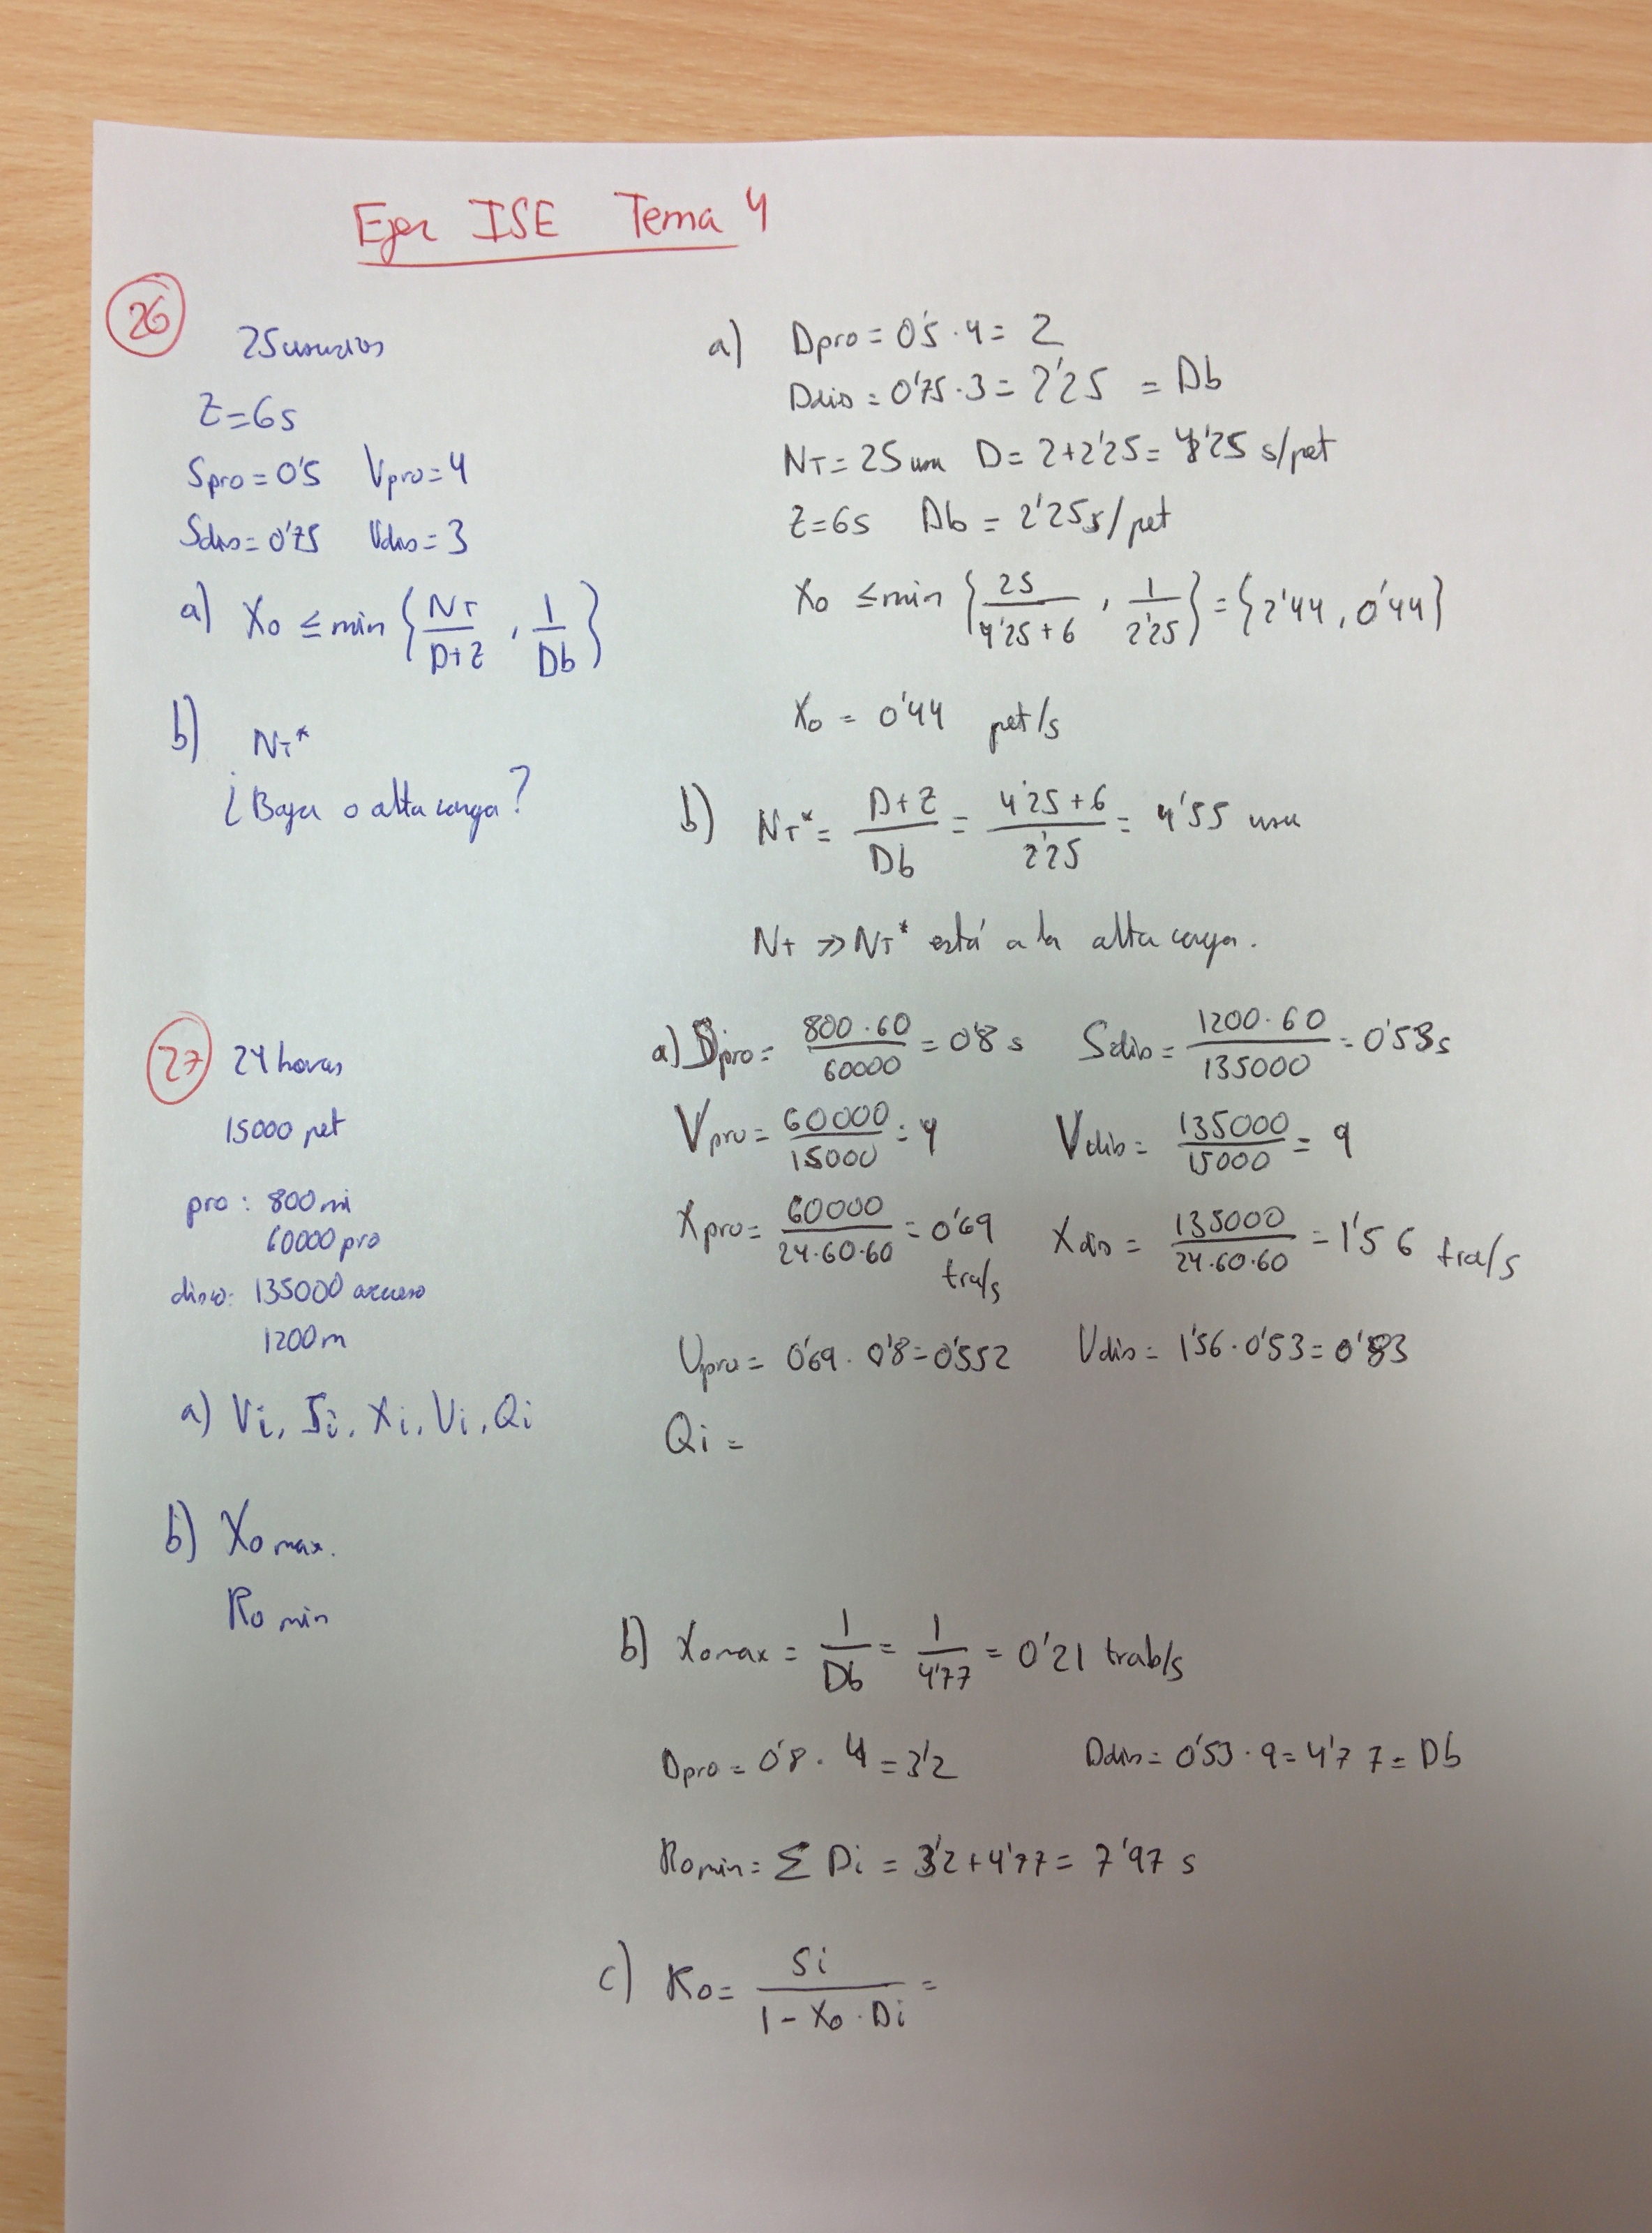 Ejer ISE Tema 4
26
25 usuarios
Z=6s
Spro=0'5 Vpro=4
Sdis=0'75 Vdis=3
a) X0 ≤ min {NT/D+Z , 1/Db}
b) NT*
¿Baja o alta carga?
a) Dpro = 0'5 · 4 = 2
Ddis = 0'75 · 3 = 2'25 = Db
NT = 25 usu D = 2+2'25 = 4'25 s/pet
Z=6s Db = 2'25 s/pet
X0 ≤ min {25/4'25+6 , 1/2'25} = {2'44 , 0'44}
X0 = 0'44 pet/s
b) NT* = D+Z/Db = 4'25+6/2'25 = 4'55 usu
NT >> NT* está a la alta carga.
27
24 horas
15000 pet
pro: 800 mi
60000 pro
disco: 135000 acceso
1200 m
a) Vi, Si, Xi, Ui, Qi
b) X0 max.
R0 min
a) Spro = 800·60/60000 = 0'8 s Sdis = 1200·60/135000 = 0'53s
Vpro = 60000/15000 = 4 Vdis = 135000/15000 = 9
Xpro = 60000/24·60·60 = 0'69 tra/s Xdis = 135000/24·60·60 = 1'56 tra/s
Upro = 0'69 · 0'8 = 0'552 Udis = 1'56 · 0'53 = 0'83
Qi =
b) X0max = 1/Db = 1/4'77 = 0'21 trab/s
Dpro = 0'8 · 4 = 3'2 Ddis = 0'53 · 9 = 4'77 = Db
R0min = Σ Di = 3'2+4'77 = 7'97 s
c) R0 = Si/1 - X0 · Di =